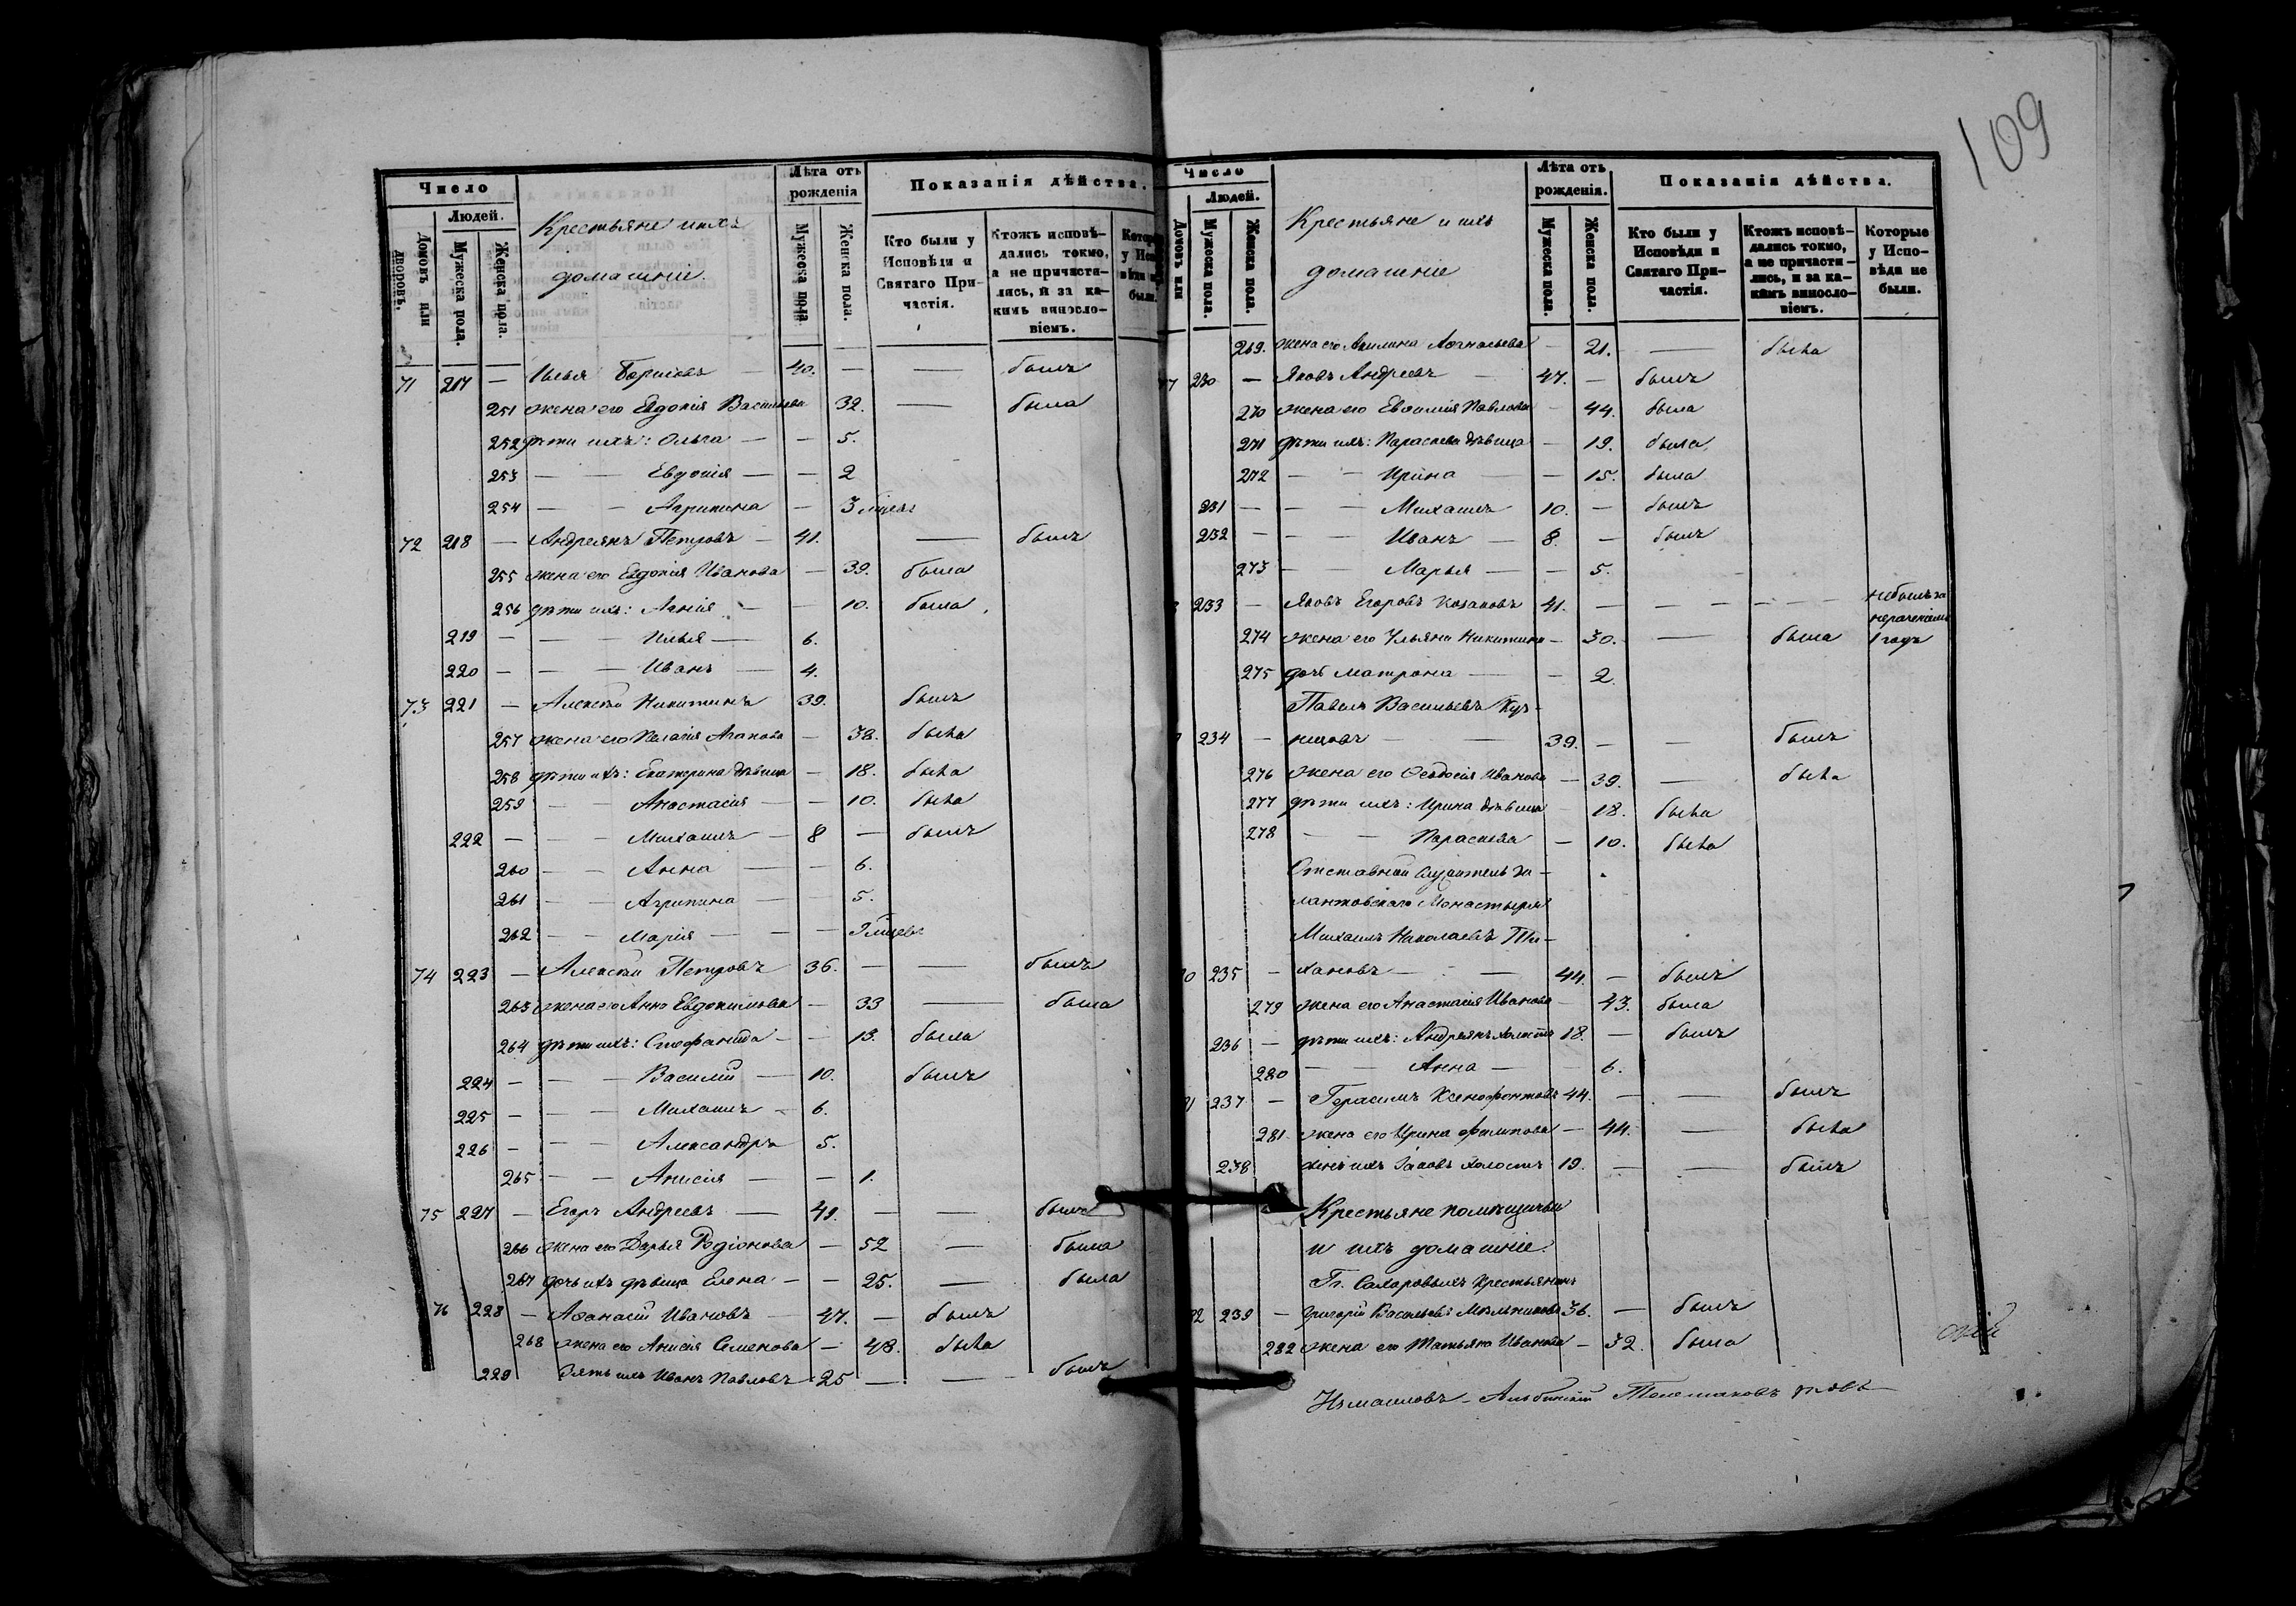 109
Число
Людей.
Домовъ или дворовъ.
Мужеска пола.
Женска пола.
Крестьяне ихъ
домашніе.
Лѣта отъ рожденія
Мужеска пола.
Женска пола.
Показанія дѣйства.
Кто были у Исповѣди и Святаго Причастія.
Ктожъ исповѣдались токмо, а не причастились, и за какимъ винословіемъ.
71 217 — Илья Борисовъ — 40. — — былъ
251 жена его Евдокія Васильева 32. — была
252 дѣти ихъ: Ольга — — 5.
253 — — Евдокія — — 2
254 — — Агрипина — 3 мѣсяц
72 218 — Андреянъ Петровъ — 41. — былъ
255 жена его Евдокія Иванова — 39. была
256 дѣти ихъ: Агнія — — 10. была
219 — — — Илья — 6.
220 — — — Иванъ — 4.
73 221 — Алексѣй Никитинъ 39. былъ
257 жена его Пелагія Агапова — 38. была
258 дѣти ихъ: Екатерина дѣвица — 18. была
259 — — Анастасія — — 10. была
222 — — — Михаилъ — 8 — былъ
260 — — Анна — — 6.
261 — — Агрипина — — 5.
262 — — Марія — — —
74 223 — Алексѣй Петровъ 36. — — былъ
263 жена его Анна Евдокимова — 33 — была
264 дѣти ихъ: Стефанида — — 13. была
224 — — — Василій — 10. былъ
225 — — — Михаилъ — 6.
226 — — — Александръ 5.
265 — — Анисія — — 1.
75 227 — Егоръ Андреевъ — 49. — — былъ
266 жена его Дарья Родіонова — 52 — была
267 дочь ихъ дѣвица Елена — — 25. — была
76 228 — Афанасій Ивановъ — 47. — былъ
268 жена его Анисія Семенова — 48. была
229 Зять ихъ Иванъ Павловъ 25 — — былъ
Число
Людей.
Домовъ или
Мужеска пола.
Женска пола.
Крестьяне и ихъ
домашніе
Лѣта отъ рожденія.
Мужеска пола.
Женска пола.
Показанія дѣйства.
Кто были у Исповѣди и Святаго Причастія.
Ктожъ исповѣдались токмо, а не причастились, и за какимъ винословіемъ.
Которые у Исповѣди не были.
269. жена его Акилина Афанасьева — 21. — была
7 230 — Яковъ Андреевъ — 47. — былъ
270 жена его Евфимія Павлова — 44. была
271 дѣти ихъ: Параскева дѣвица — 19. была
272 — — Ирина — — 15. была
231 — — — Михаилъ 10. — былъ
232 — — — Иванъ — 8. — былъ
273 — — Марья — — 5.
233 — Яковъ Егоровъ Казаковъ 41. — — — — — — небылъ за
нерачениемъ
274 жена его Ульяна Никитина — 30. — была 1 годъ
275 дочь Матрона — — 2.
Павелъ Васильевъ Куз-
234 — нецовъ — — 39. — — былъ
276 жена его Феодосія Иванова — 39. — была
277 дѣти ихъ: Ирина дѣвица 18. была
278 — — Параскева — 10. была
Отставной служитель Зи-
лантовскаго Монастыря
Михаилъ Николаевъ Ти-
0 235 — хановъ — — 44. — былъ
279 жена его Анастасія Иванова — 43. была
236 — дѣти ихъ: Андреянъ холостъ 18. — былъ
280 — — Анна — 6.
237 — Герасимъ Ксенофонтовъ 44. — — былъ
281 жена его Ирина Филипова — 44. — была
238 сынъ ихъ Іаковъ холостъ 19. — — былъ
Крестьяне помѣщичьи
и ихъ домашніе.
Гг. Сахаровыхъ крестьянинъ
2 239 — Григорій Васильевъ Мельниковъ 36. — былъ
282 жена его Татьяна Иванова — 32. была